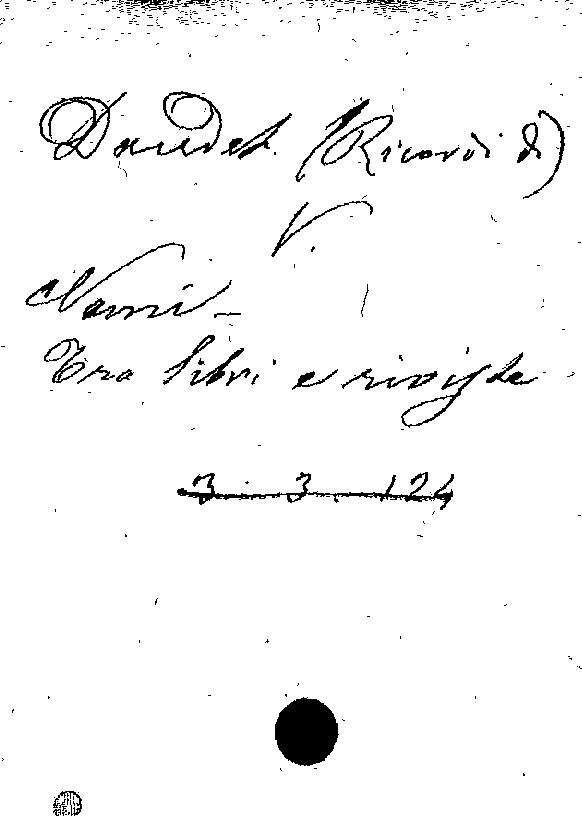 Daudet (Ricordi di)
V.
Nanni -
Tra libri e riviste
3. 3. 124